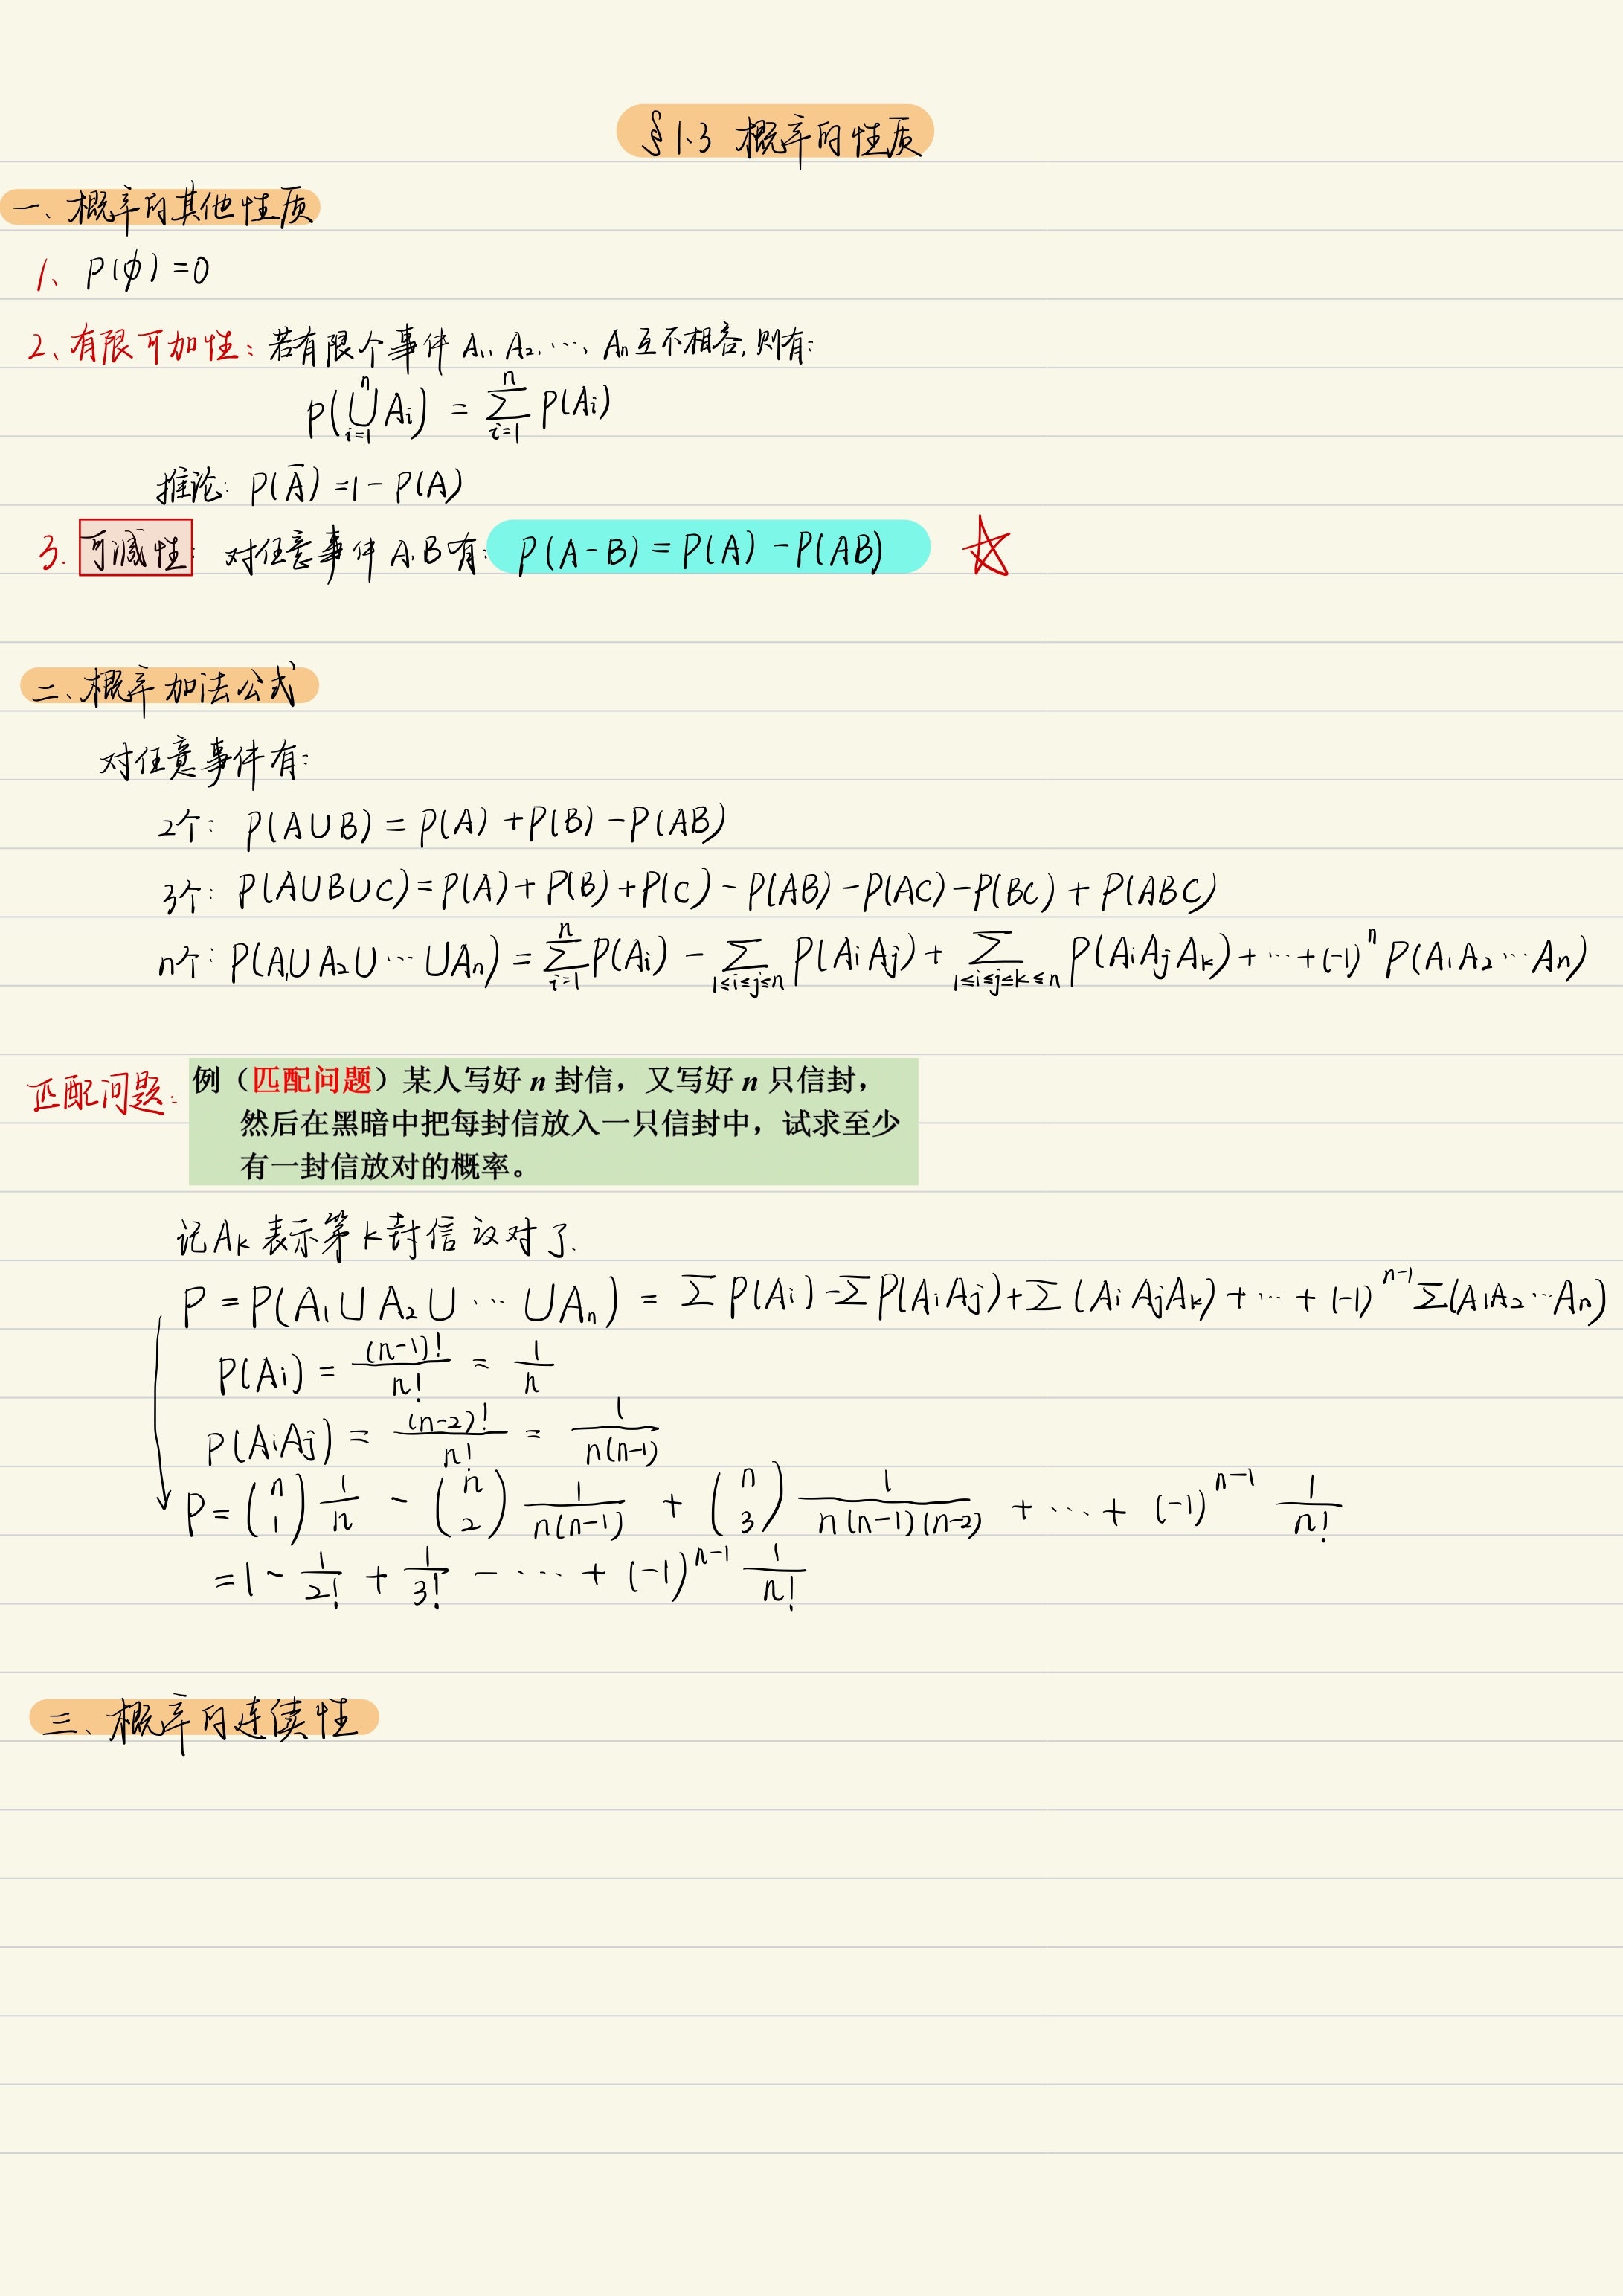 §1.3 概率的性质
一、概率的其他性质
1、P(φ)=0
2、有限可加性：若有限个事件 A₁, A₂, …, Aₙ互不相容, 则有:
P(⋃ᵢ₌₁ⁿ Aᵢ) = ∑ᵢ₌₁ⁿ P(Aᵢ)
推论: P(A̅) = 1 - P(A)
3. 可减性: 对任意事件 A.B有: P(A-B) = P(A) - P(AB) ☆
二、概率加法公式
对任意事件有:
2个: P(A∪B) = P(A) + P(B) - P(AB)
3个: P(A∪B∪C) = P(A) + P(B) + P(C) - P(AB) - P(AC) - P(BC) + P(ABC)
n个: P(A₁∪A₂∪…∪Aₙ) = ∑ᵢ₌₁ⁿ P(Aᵢ) - ∑_{1≤i≤j≤n} P(AᵢAⱼ) + ∑_{1≤i≤j≤k≤n} P(AᵢAⱼAₖ) + … + (-1)ⁿ P(A₁A₂…Aₙ)
匹配问题: 例（匹配问题）某人写好 n 封信，又写好 n 只信封，
然后在黑暗中把每封信放入一只信封中，试求至少
有一封信放对的概率。
记Aₖ表示第k封信 对了.
P = P(A₁∪A₂∪…∪Aₙ) = ∑P(Aᵢ) - ∑P(AᵢAⱼ) + ∑(AᵢAⱼAₖ) + … + (-1)ⁿ⁻¹ ∑(A₁A₂…Aₙ)
P(Aᵢ) = (n-1)!/n! = 1/n
P(AᵢAⱼ) = (n-2)!/n! = 1/n(n-1)
P = (n 1) 1/n - (n 2) 1/n(n-1) + (n 3) 1/n(n-1)(n-2) + … + (-1)ⁿ⁻¹ 1/n!
= 1 - 1/2! + 1/3! - … + (-1)ⁿ⁻¹ 1/n!
三、概率的连续性